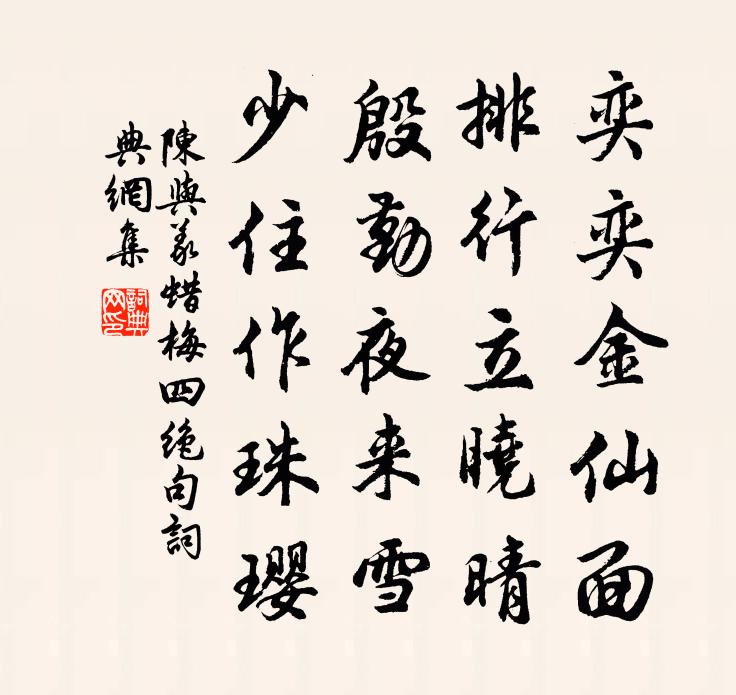 奕奕金仙面
排行立曉晴
殷勤夜来雪
少住作珠瓔
陳與義蜡梅四絶句詞
典網集
詞典網印